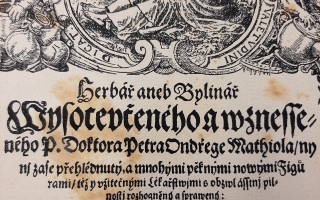 DICAT
VALETVDINI
Herbář aneb Bylinář
Wysocevčeného a wznesse-
ného P. Doktora Petra Ondřege Mathiola/ ny
nj zase přehlédnutý, a mnohými pěknými nowými Figů
rami/ též y vžitečnými Lékařstwjmi s obzwlásstnj pil-
nostj rozhogněný a sprawený: